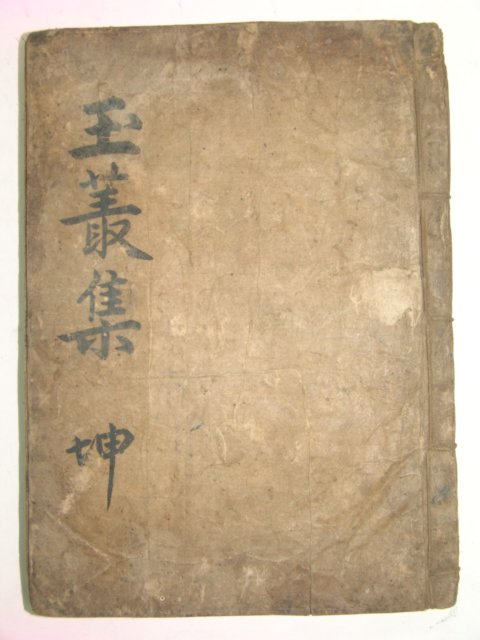 玉叢集 坤